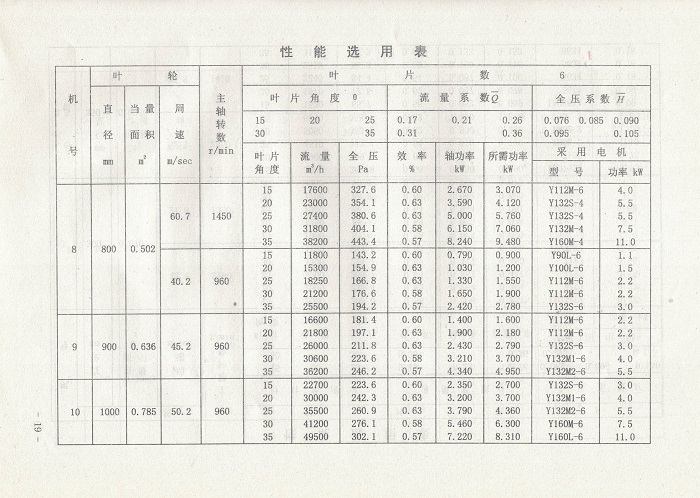 性能选用表
机号 叶轮 主轴转数 r/min 叶片数 6
直径 mm 当量面积 m² 周速 m/sec 叶片角度 θ 流量系数Q̅ 全压系数 H̅
15 20 25 0.17 0.21 0.26 0.076 0.085 0.090
30 35 0.31 0.36 0.095 0.105
叶片角度 流量 m³/h 全压 Pa 效率 % 轴功率 kW 所需功率 kW 采用电机
型号 功率 kW
8 800 0.502 60.7 1450 15 17600 327.6 0.60 2.670 3.070 Y112M-6 4.0
20 23000 354.1 0.63 3.590 4.120 Y132S-4 5.5
25 27400 380.6 0.63 5.000 5.760 Y132S-4 5.5
30 31800 404.1 0.58 6.150 7.060 Y132M-4 7.5
35 38200 443.4 0.57 8.240 9.480 Y160M-4 11.0
40.2 960 15 11800 143.2 0.60 0.790 0.900 Y90L-6 1.1
20 15300 154.9 0.63 1.030 1.200 Y100L-6 1.5
25 18250 166.8 0.63 1.330 1.550 Y112M-6 2.2
30 21200 176.6 0.58 1.650 1.900 Y112M-6 2.2
35 25500 194.2 0.57 2.420 2.780 Y132S-6 3.0
9 900 0.636 45.2 960 15 16600 181.4 0.60 1.400 1.600 Y112M-6 2.2
20 21800 197.1 0.63 1.900 2.180 Y112M-6 2.2
25 26000 211.8 0.63 2.430 2.790 Y132S-6 3.0
30 30600 223.6 0.58 3.210 3.700 Y132M1-6 4.0
35 36200 246.2 0.57 4.340 4.950 Y132M2-6 5.5
10 1000 0.785 50.2 960 15 22700 223.6 0.60 2.350 2.700 Y132S-6 3.0
20 30000 242.3 0.63 3.200 3.700 Y132M1-6 4.0
25 35500 260.9 0.63 3.790 4.360 Y132M2-6 5.5
30 41200 276.1 0.58 5.460 6.300 Y160M-6 7.5
35 49500 302.1 0.57 7.220 8.310 Y160L-6 11.0
- 19 -